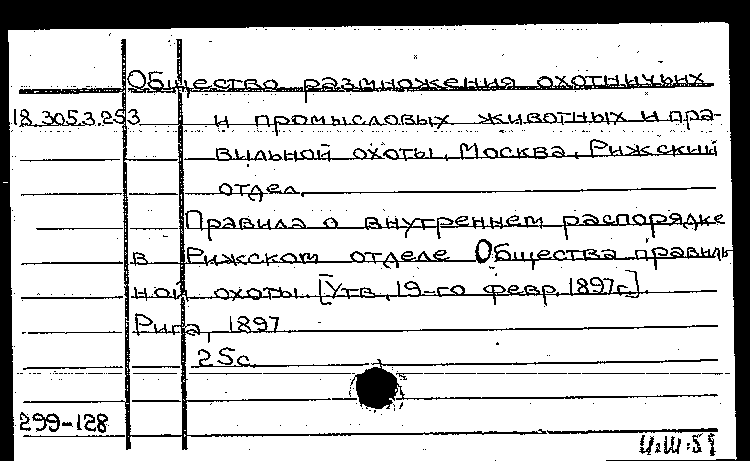 Общество размножения охотничьих
18.305.3.253 и промысловых животных и пра-
вильной охоты. Москва. Рижский
отдел.
Правила о внутреннем распорядке
в Рижском отделе Общества правиль
ной охоты. [Утв. 19-го февр. 1897г.].
Рига, 1897.
25с.
299-128